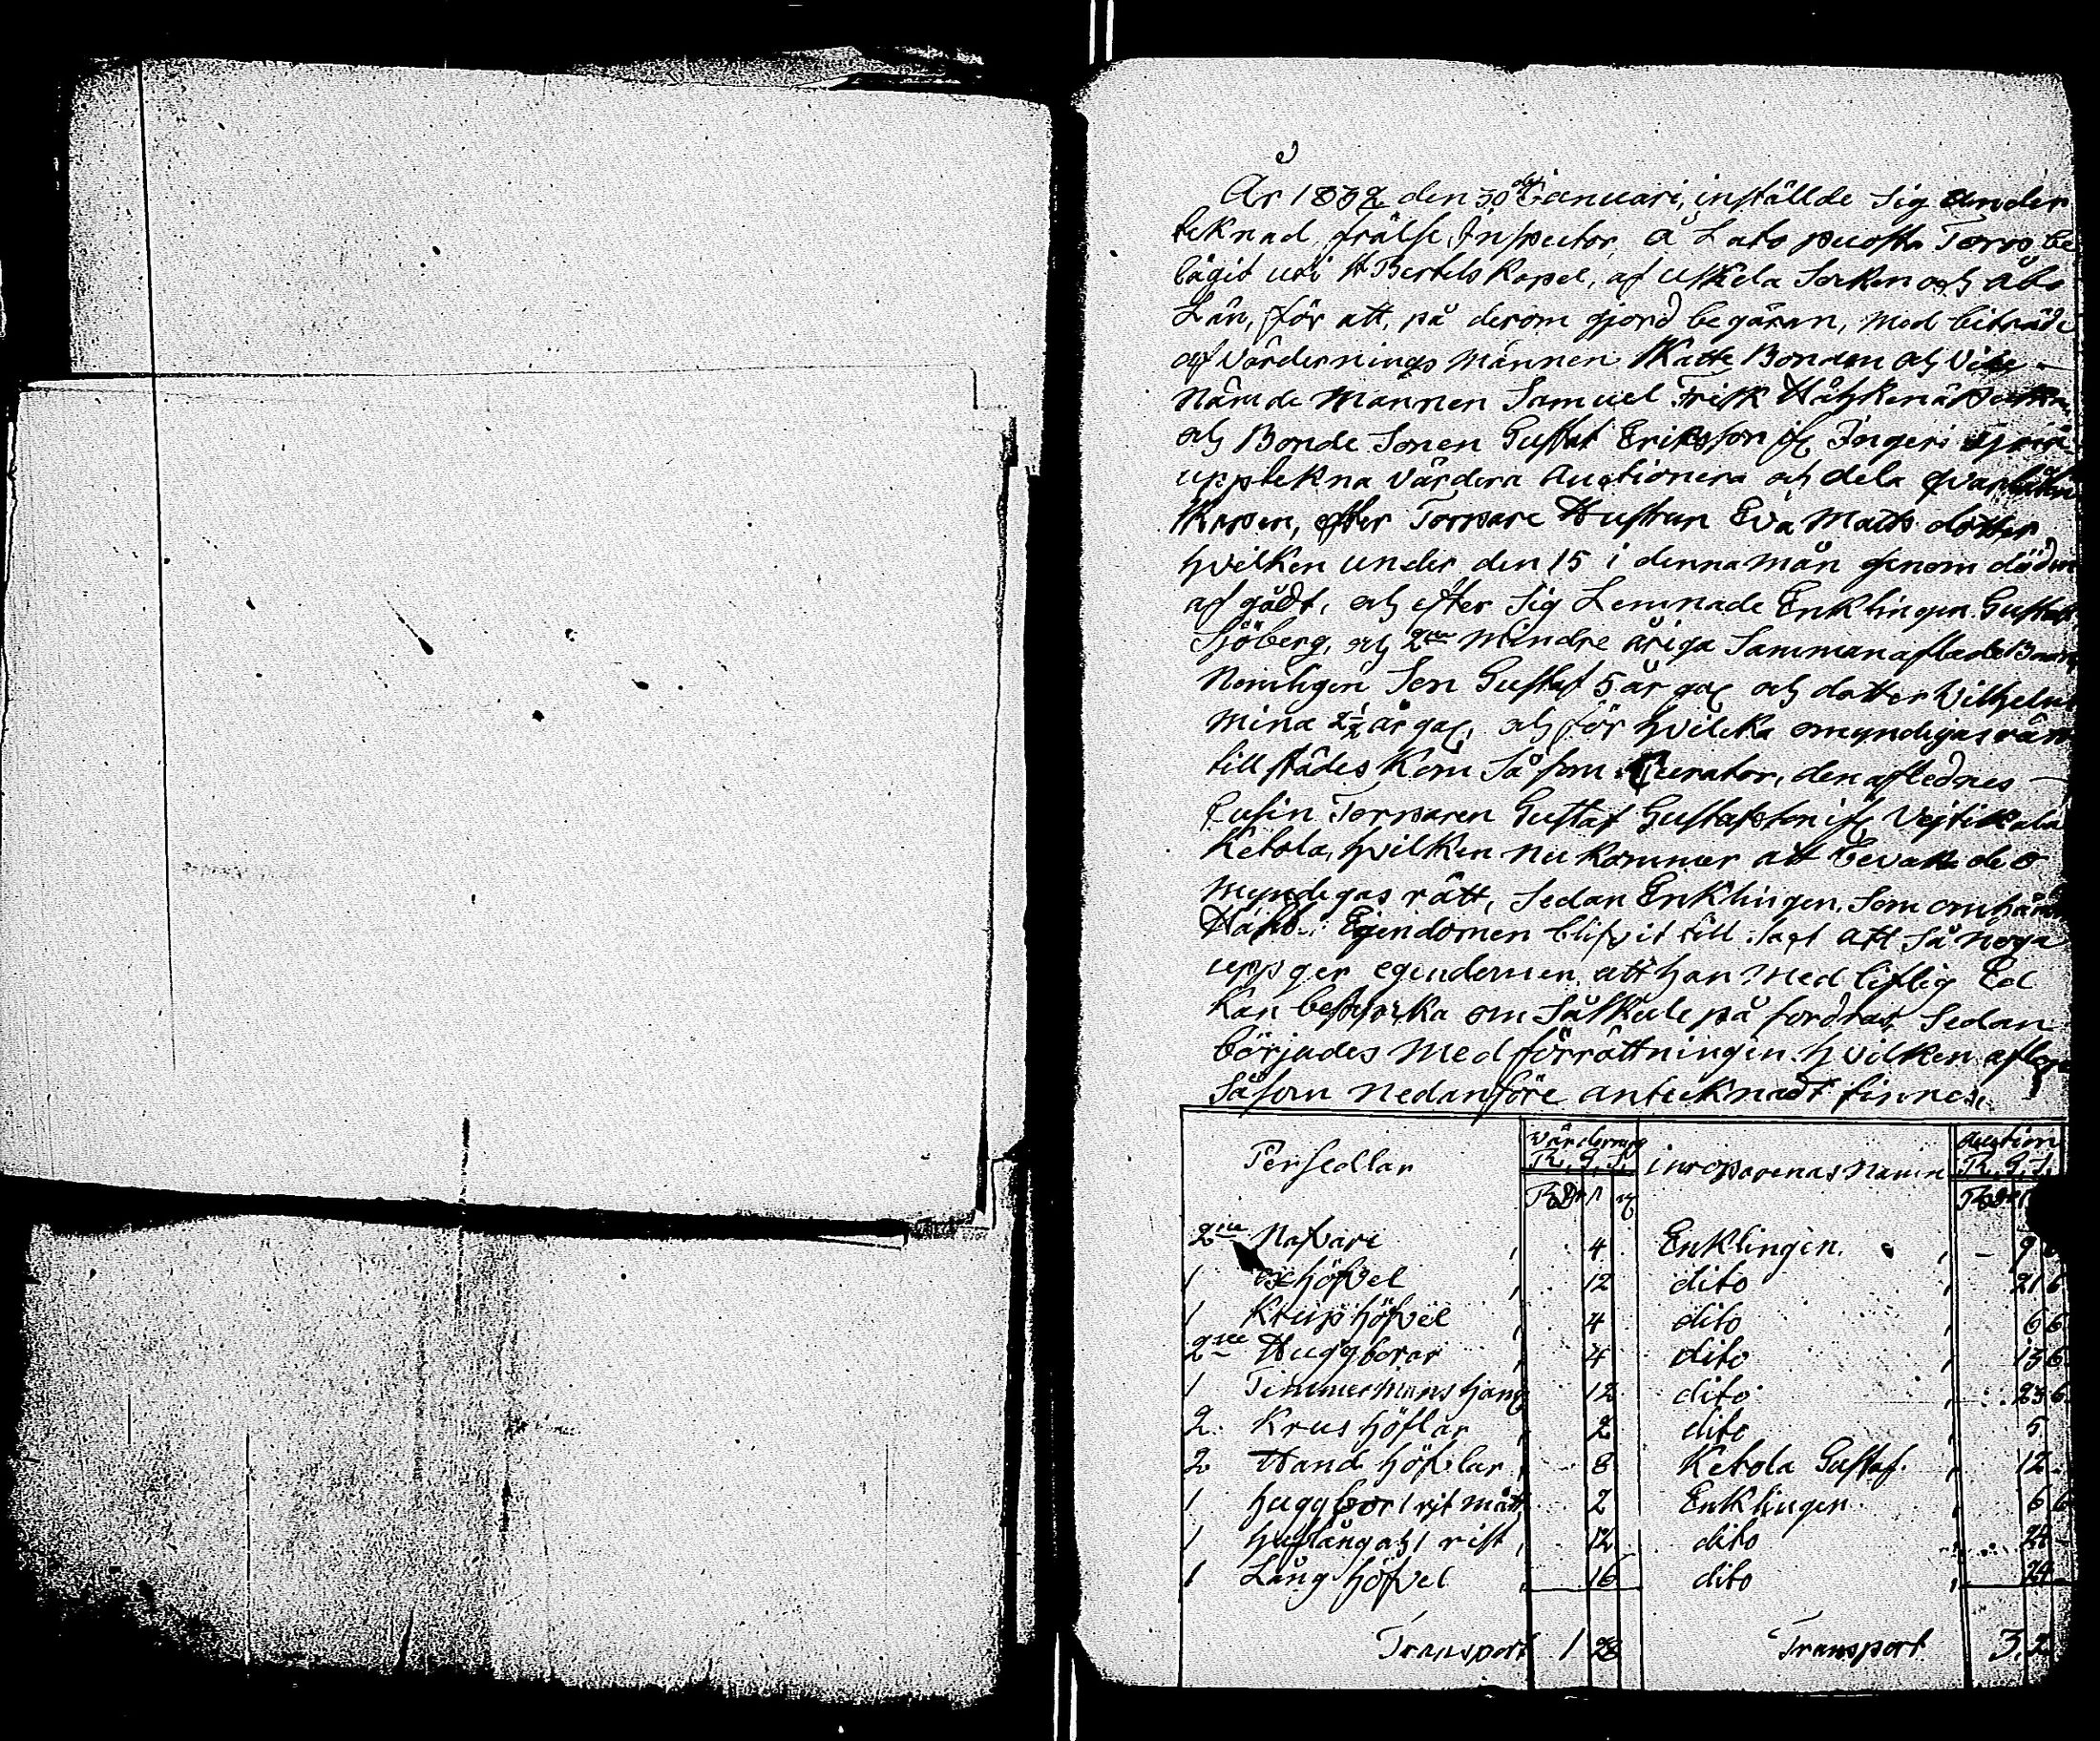 År 1832 den 30de Januari, inställde Sig under
teknad frälse Inspector, å Lato puosta Torp be
lägit uti St Bertels Kapel, af Uskela Socken och Åbo
Län, för att, på derom gjord begäran, med biträde
af Värdernings Männen Katte Bonden och Vice
Nämde Mannen Samuel Frisk
och Bonde Sonen Gustaf Eriksson ifr Ingeri
upptekna Värdera Auctionera och dela qvarlåten
Skapen, efter Torpare Hustrun Eva Matts dotter
hvilken under den 15 i denna mån genom döden
af gådt, och efter Sig Lemnade Enklingen Gustaf
Sjöberg, och 2ne Mindre åriga Sammanaflade Barn
Nemligen Son Gustaf 5 år gal och dotter Vilhel
mina 2½ år gal, och för hvilka omyndigas rätt
till städes kom Så som Curator, den aflednes
Cusin Torparen Gustaf Gustafsson ifr Vejtikala
Ketola, hvilken nu kommer att bevaka de o
myndigas rätt, Sedan Enklingen, Som
Egendomen blifvit till sagt att Så noga
uppger egendomen att han med liflig Ed
kan bestyrka om Så Skule på fordras, Sedan
börjades med förrättningen hvilken aflop
Såsom nedanföre antecknadt finnes,
Persedlar Värdering R. G. S. inroparenas Namn Auction R. G. S.
2ne Nafvare 4 Enklingen 9
1 höfvel 12 dito 21 6
1 höfvel 4 dito 6 6
2ne Huggborar 4 dito 13 6
1 Timmermans 12 dito 23 6
2 Krus höflar 2 dito 5
2 Hand höflar 8 Ketola Gustaf 12
1 huggbor 1 mått 2 Enklingen 6 6
1 och 1 rist 12 dito 24
1 Lång höfvel 16 dito 24
Transport 1 28 Transport 3 2